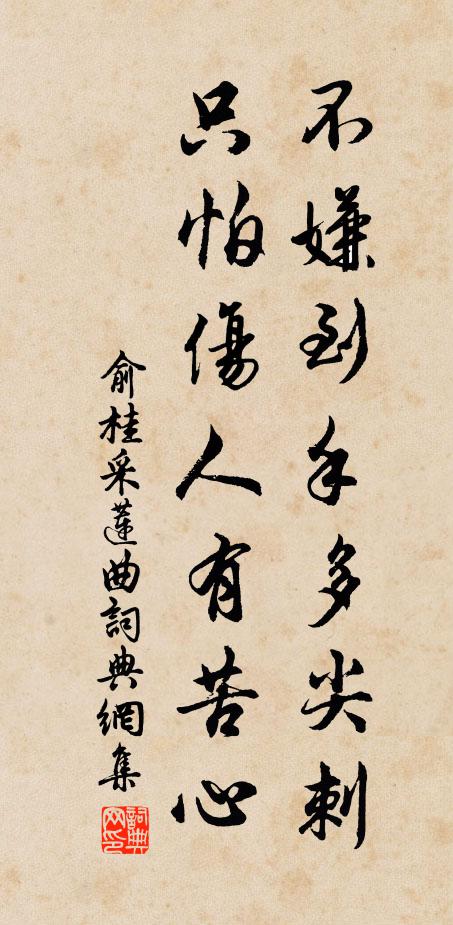 不嫌到手多尖刺
只怕傷人有苦心
俞桂采蓮曲詞典網集
詞典網印